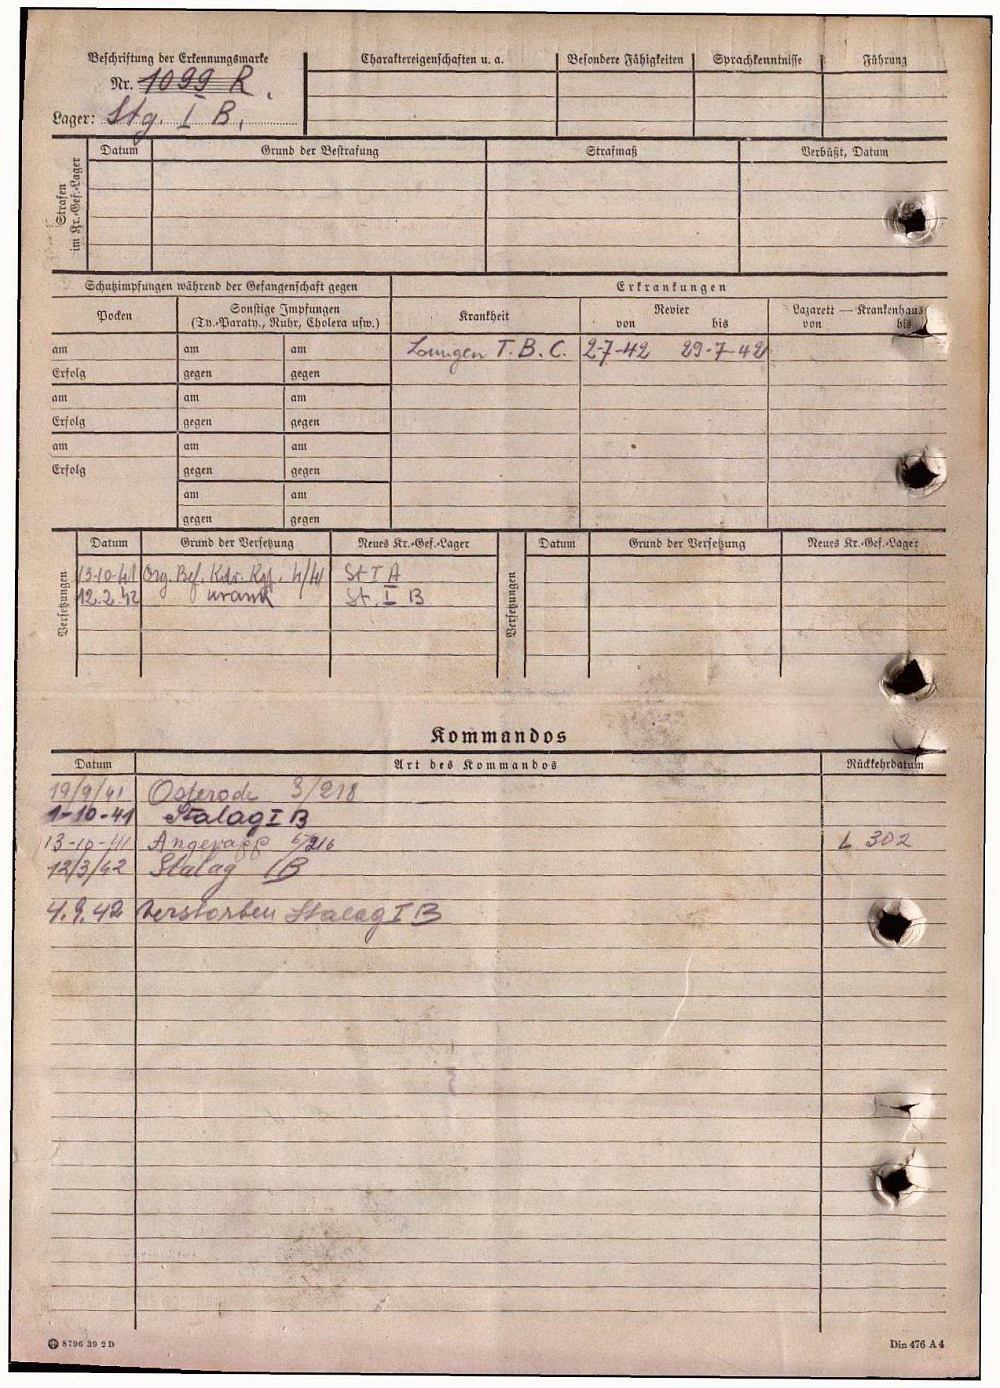 Beschriftung der Erkennungsmarke
Nr. 1099 R.
Lager: Stg. I B.
Charaktereigenschaften u. a. Besondere Fähigkeiten Sprachkenntnisse Führung
Strafen im Kr.-Gef.-Lager
Datum Grund der Bestrafung Strafmaß Verbüßt, Datum
Schutzimpfungen während der Gefangenschaft gegen Erkrankungen
Pocken Sonstige Impfungen Krankheit Revier Lazarett — Krankenhaus
(Ty.-Paraty., Ruhr, Cholera usw.) von bis von bis
am am am Lungen T.B.C. 2-7-42 29-7-42
Erfolg gegen gegen
am am am
Erfolg gegen gegen
am am am
Erfolg gegen gegen
am am
gegen gegen
Versetzungen
Datum Grund der Versetzung Neues Kr.-Gef.-Lager
13-10-41 Org. Bef. St I A
12.2.42 krank St. I B
Versetzungen
Datum Grund der Versetzung Neues Kr.-Gef.-Lager
Kommandos
Datum Art des Kommandos Rückkehrdatum
19/9/41 Osterode 3/218
1-10-41 Stalag I B
13-10-41 Angerapp L 302
12/3/42 Stalag IB
4.9.42 Verstorben Stalag I B
8796 39 2 D
Din 476 A 4